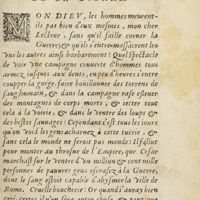 ON DIEV, les hommes meurent-
ils pas bien d'eux mesmes, mon cher
Lecteur, sans qu'il faille corner la
Guerre, & qu'ils s'entremassacrent les
vns les autres aussi barbarement? Quel spectacle
de voir vne campagne couuerte d'hommes tous
armez iusques aux dents, en peu d'heures s'entre
couper la gorge, faire deborder des torrens de
sang humain, & dans la campagne rase esleuer
des montagnes de corps morts, & ietter tout
cela à la voirie, & dans le ventre des loups &
des bestes sauuages: Cependant c'est tous les iours
qu'on void ces gens acharnez à cette tuërie, &
sans cela le monde ne seroit pas monde: Il fallut
pour monter au throsne de l'Empire, que Cesar
marchast sur le ventre d'vn million & cent mille
personnes de pauures gens egorgez à la Guerre,
dont le sang estoit capable d'abysmer la Ville de
Rome. Cruelle boucherie: Or quand i'auray bien